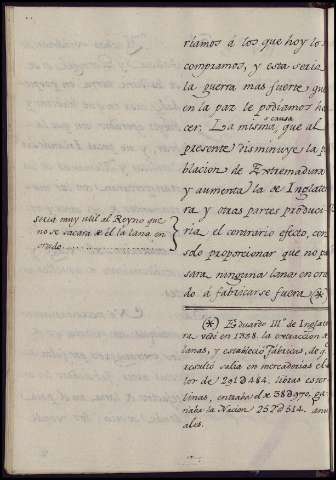 ríamos á los que hoy lo
compramos, y esta seria
la guerra mas fuerte, que
en la paz le podiamos ha
cer. La misma causa, que al
presente disminuye la po
blacion de Extremadura
y aumenta la de Inglater
ra y otras partes produci
ria el contrario efecto, con
solo proporcionar que no pa
sara ninguna lana en cru
do á fabricarse fuera (*)
seria muy util al Reyno que
no se sacara de él la lana en
crudo
(*) Eduardo III.º de Inglater
ra vedó en 1338. la extraccion de
lanas, y estableció Fábricas, de q.e
resultó salia en mercaderias el va
lor de 291D484. libras ester
linas, entraba el de 38D970. ga
naba la Nacion 252D514. anu
ales.